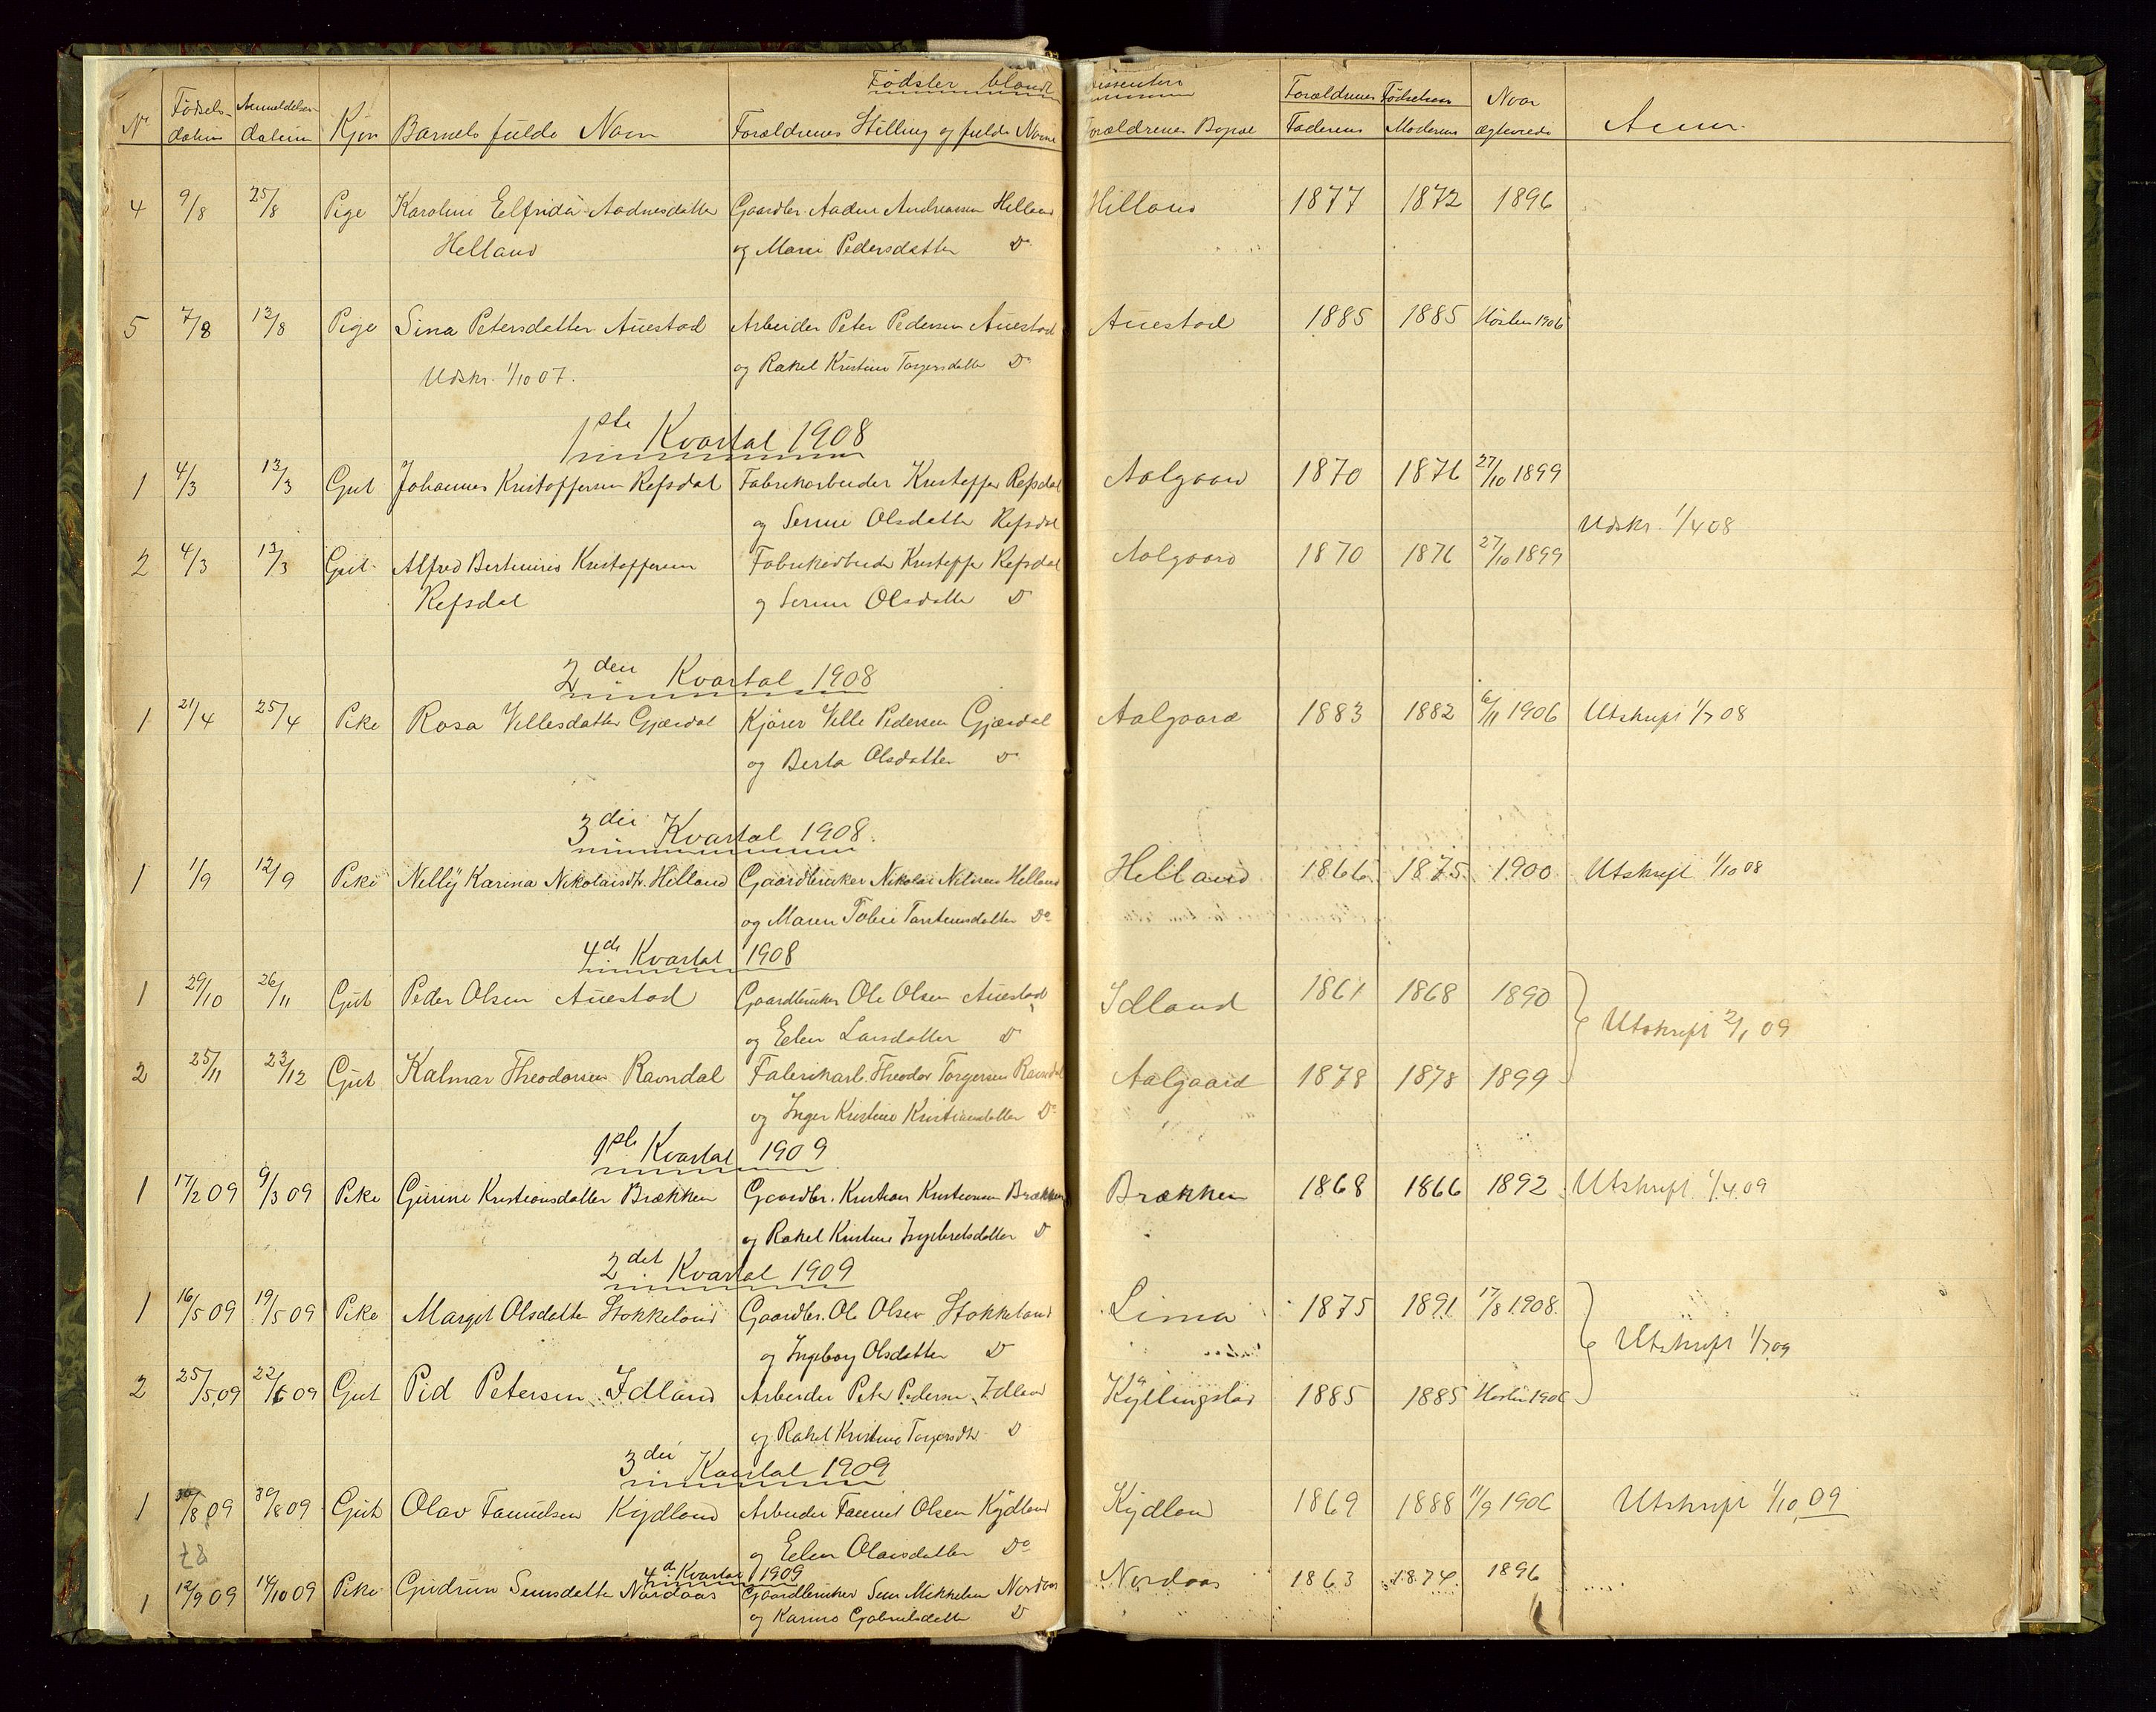 Fødsler blandt Dissentere
No Fødsels- datum Anmeldelses datum Kjøn Barnets fulde Navn Forældrenes Stilling og fulde Navne Forældrenes Bopæl Forældrenes Fødselsaar Faderens Moderens Naar ægteviede Anm.
4 9/8 25/8 Pige Karoline Elfrida Aadnesdatter Gaardbr. Aadne Andreassen Helland Helland 1877 1872 1896
Helland og Marie Pedersdatter Do
5 7/8 12/8 Pige Sina Petersdatter Auestad Arbeider Peter Pedersen Auestad Auestad 1885 1885 Høsten 1906
Udskr. 1/10 07. og Rakel Kristine Torgersdatter Do
1ste Kvartal 1908
1 4/3 13/3 Gut Johannes Kristoffersen Refsdal Fabrikarbeider Kristoffer Refsdal Aalgaard 1870 1876 27/10 1899
og Serine Olsdatter Refsdal Udskr. 1/4 08
2 4/3 13/3 Gut Alfred Bertinius Kristoffersen Fabrikarbeider Kristoffer Refsdal Aalgaard 1870 1876 27/10 1899
Refsdal og Serine Olsdatter Do
2den Kvartal 1908
1 21/4 25/4 Pike Rosa Villesdatter Gjæsdal Kjører Ville Pedersen Gjæsdal Aalgaard 1883 1882 6/11 1906 Utskrift 1/7 08
og Berta Olsdatter Do
3die Kvartal 1908.
1 1/9 12/9 Pike Nelly Karina Nikolaisdtr. Helland Gaardbruker Nikolai Nilsen Helland Helland 1866 1875 1900 Utskrift 1/10 08
og Maren Toline Torsteinsdatter Do
4de Kvartal 1908
1 29/10 26/11 Gut Peder Olsen Auestad Gaardbruker Ole Olsen Auestad Idland 1861 1868 1890
og Elen Larsdatter Do Utskrift 2/1 09
2 25/11 23/12 Gut Kalmar Theodorsen Ravndal Fabrikarb. Theodor Torgersen Ravndal Aalgaard 1878 1878 1899
og Inger Kristine Kristiansdatter Do
1ste Kvartal 1909
1 17/2 09 9/3 09 Pike Gurine Kristiansdatter Brækken Gaardbr. Kristian Kristiansen Brækken Brækken 1868 1866 1892 Utskrift 1/4 09
og Rakel Kristine Ingebretsdatter Do
2det Kvartal 1909
1 16/5 09 19/5 09 Pike Margit Olsdatter Stokkeland Gaardbr. Ole Olsen Stokkeland Lima 1875 1891 17/8 1908.
og Ingeborg Olsdatter Do Utskrift 1/7 09
2 25/5 09 22/6 09 Gut Pid Petersen Idland Arbeider Peter Pedersen Idland Kyllingstad 1885 1885 Høsten 1906
og Rakel Kristine Torgersdtr. Do
3die Kvartal 1909
1 30/8 09 30/8 09 Gut Olav Tønnesen Kydland Arbeider Tønnes Olsen Kydland Kydland 1869 1888 11/9 1906 Utskrift 1/10 09
og Elen Olausdatter Do
4de Kvartal 1909
1 12/9 09 14/10 09 Pike Gudrun Semsdatter Nordaas Gaardbruker Sem Mikkelsen Nordaas Nordaas 1863 1874 1896
og Karine Gabrielsdatter Do